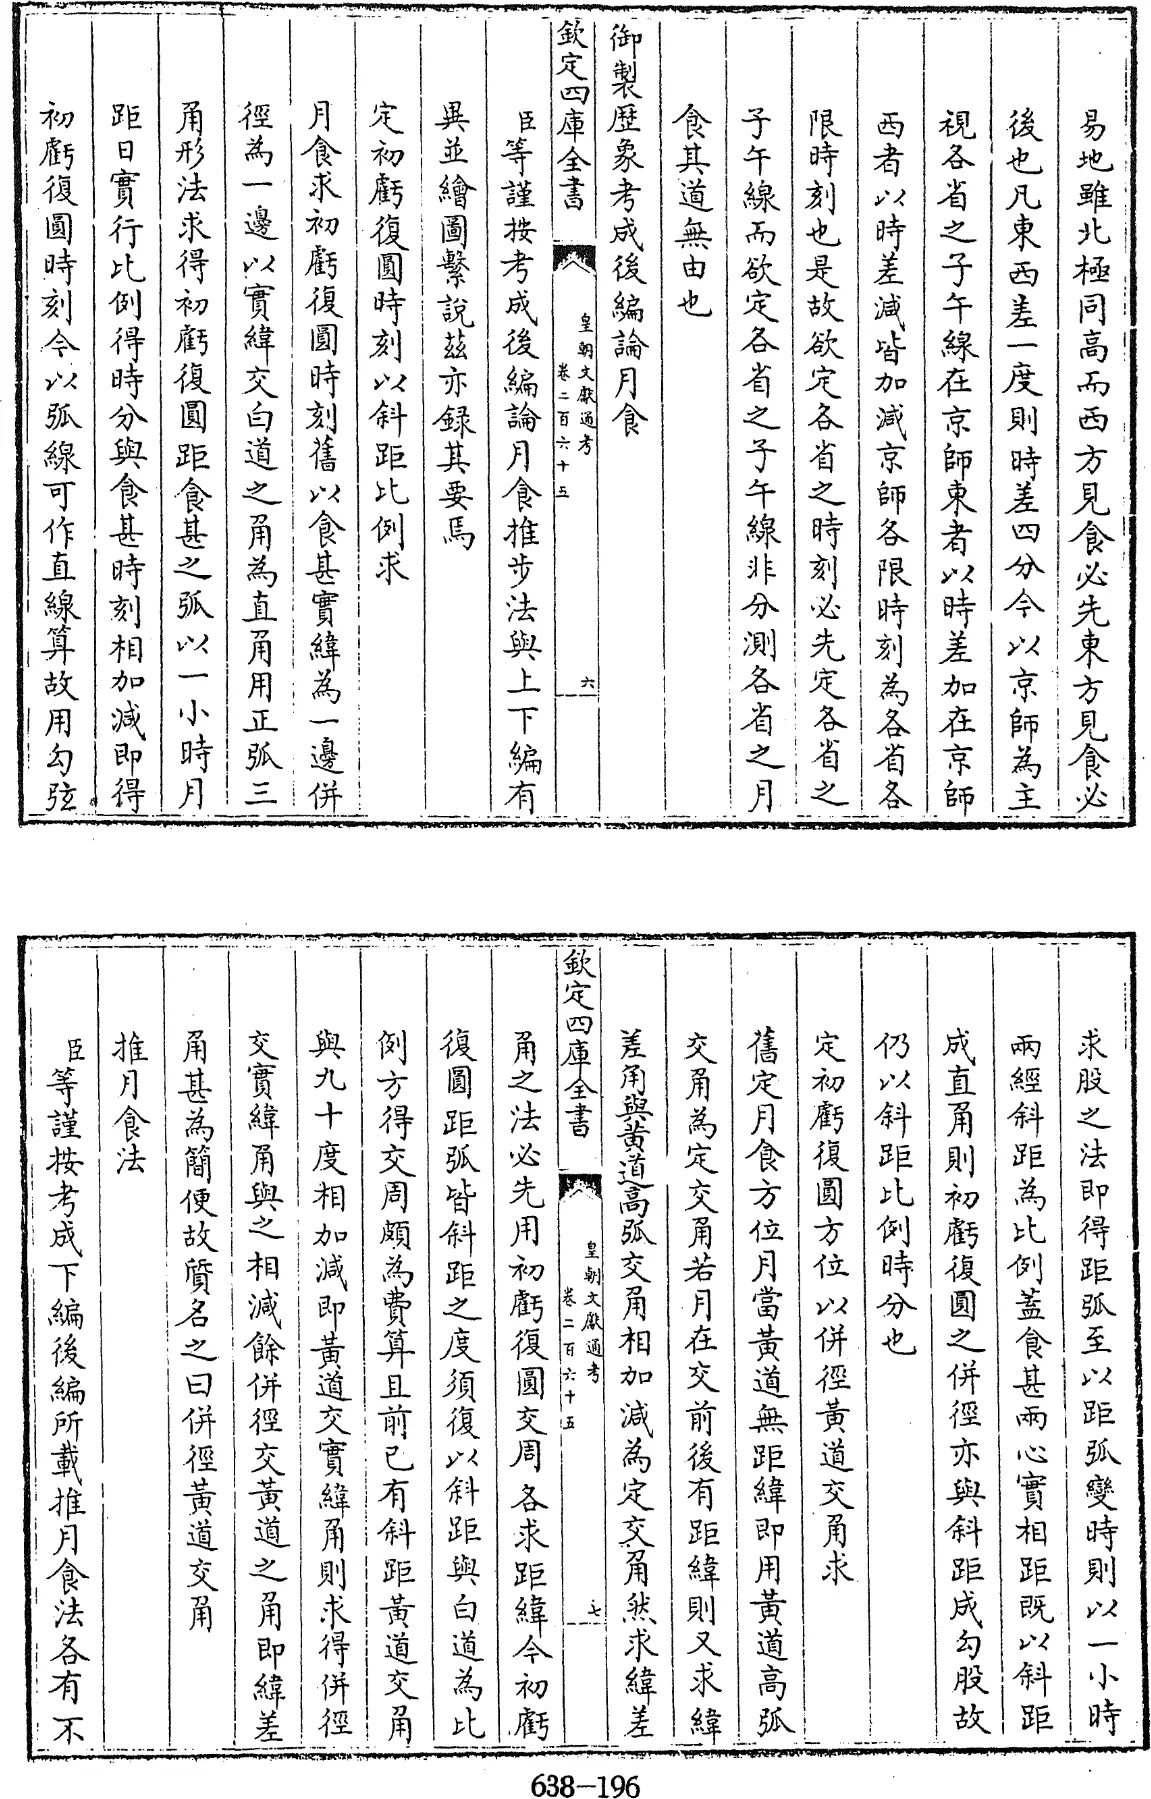 易地雖北極同高而西方見食必先東方見食必
後也凡東西差一度則時差四分今以京師為主
視各省之子午線在京師東者以時差加在京師
西者以時差減皆加減京師各限時刻為各省各
限時刻也是故欲定各省之時刻必先定各省之
子午線而欲定各省之子午線非分測各省之月
食其道無由也
御製歷象考成後編論月食
欽定四庫全書
皇朝文獻通考
卷二百六十五
六
臣等謹按考成後編論月食推步法與上下編有
異並繪圖繫說茲亦録其要焉
定初虧復圓時刻以斜距比例求
月食求初虧復圓時刻舊以食甚實緯為一邊併
徑為一邊以實緯交白道之角為直角用正弧三
角形法求得初虧復圓距食甚之弧以一小時月
距日實行比例得時分與食甚時刻相加減即得
初虧復圓時刻今以弧線可作直線算故用勾弦
求股之法即得距弧至以距弧變時則以一小時
兩經斜距為比例蓋食甚兩心實相距既以斜距
成直角則初虧復圓之併徑亦與斜距成勾股故
仍以斜距比例時分也
定初虧復圓方位以併徑黄道交角求
舊定月食方位月當黄道無距緯即用黄道高弧
交角為定交角若月在交前後有距緯則又求緯
差角與黄道高弧交角相加減為定交角然求緯差
欽定四庫全書
皇朝文獻通考
卷二百六十五
七
角之法必先用初虧復圓交周各求距緯今初虧
復圓距弧皆斜距之度須復以斜距與白道為比
例方得交周頗為費算且前已有斜距黄道交角
與九十度相加減即黄道交實緯角則求得併徑
交實緯角與之相減餘併徑交黄道之角即緯差
角甚為簡便故質名之曰併徑黄道交角
推月食法
臣等謹按考成下編後編所載推月食法各有不
638-196